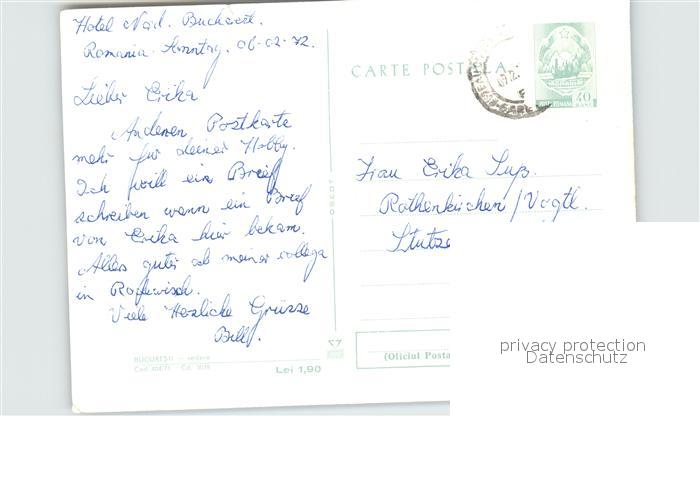 Hotel Nord. Bucharest.
Romania. Sonntag. 06-02-72.
Lieber Erika
Anderen Postkarte
mehr für deiner Hobby.
Ich will ein Brief
schreiben wann ein Brief
von Erika hier bekam.
Alles guter ob meiner collega
in Rodewisch.
Viele Herzliche Grüsse
Bill.
BUCUREȘTI — vedere
Lei 1,90
CARTE POSTALA
40
POSTA ROMANA
Frau Erika
Rothenkirchen / Vogtl.
Stutze
(Oficiul Posta
privacy protection
Datenschutz